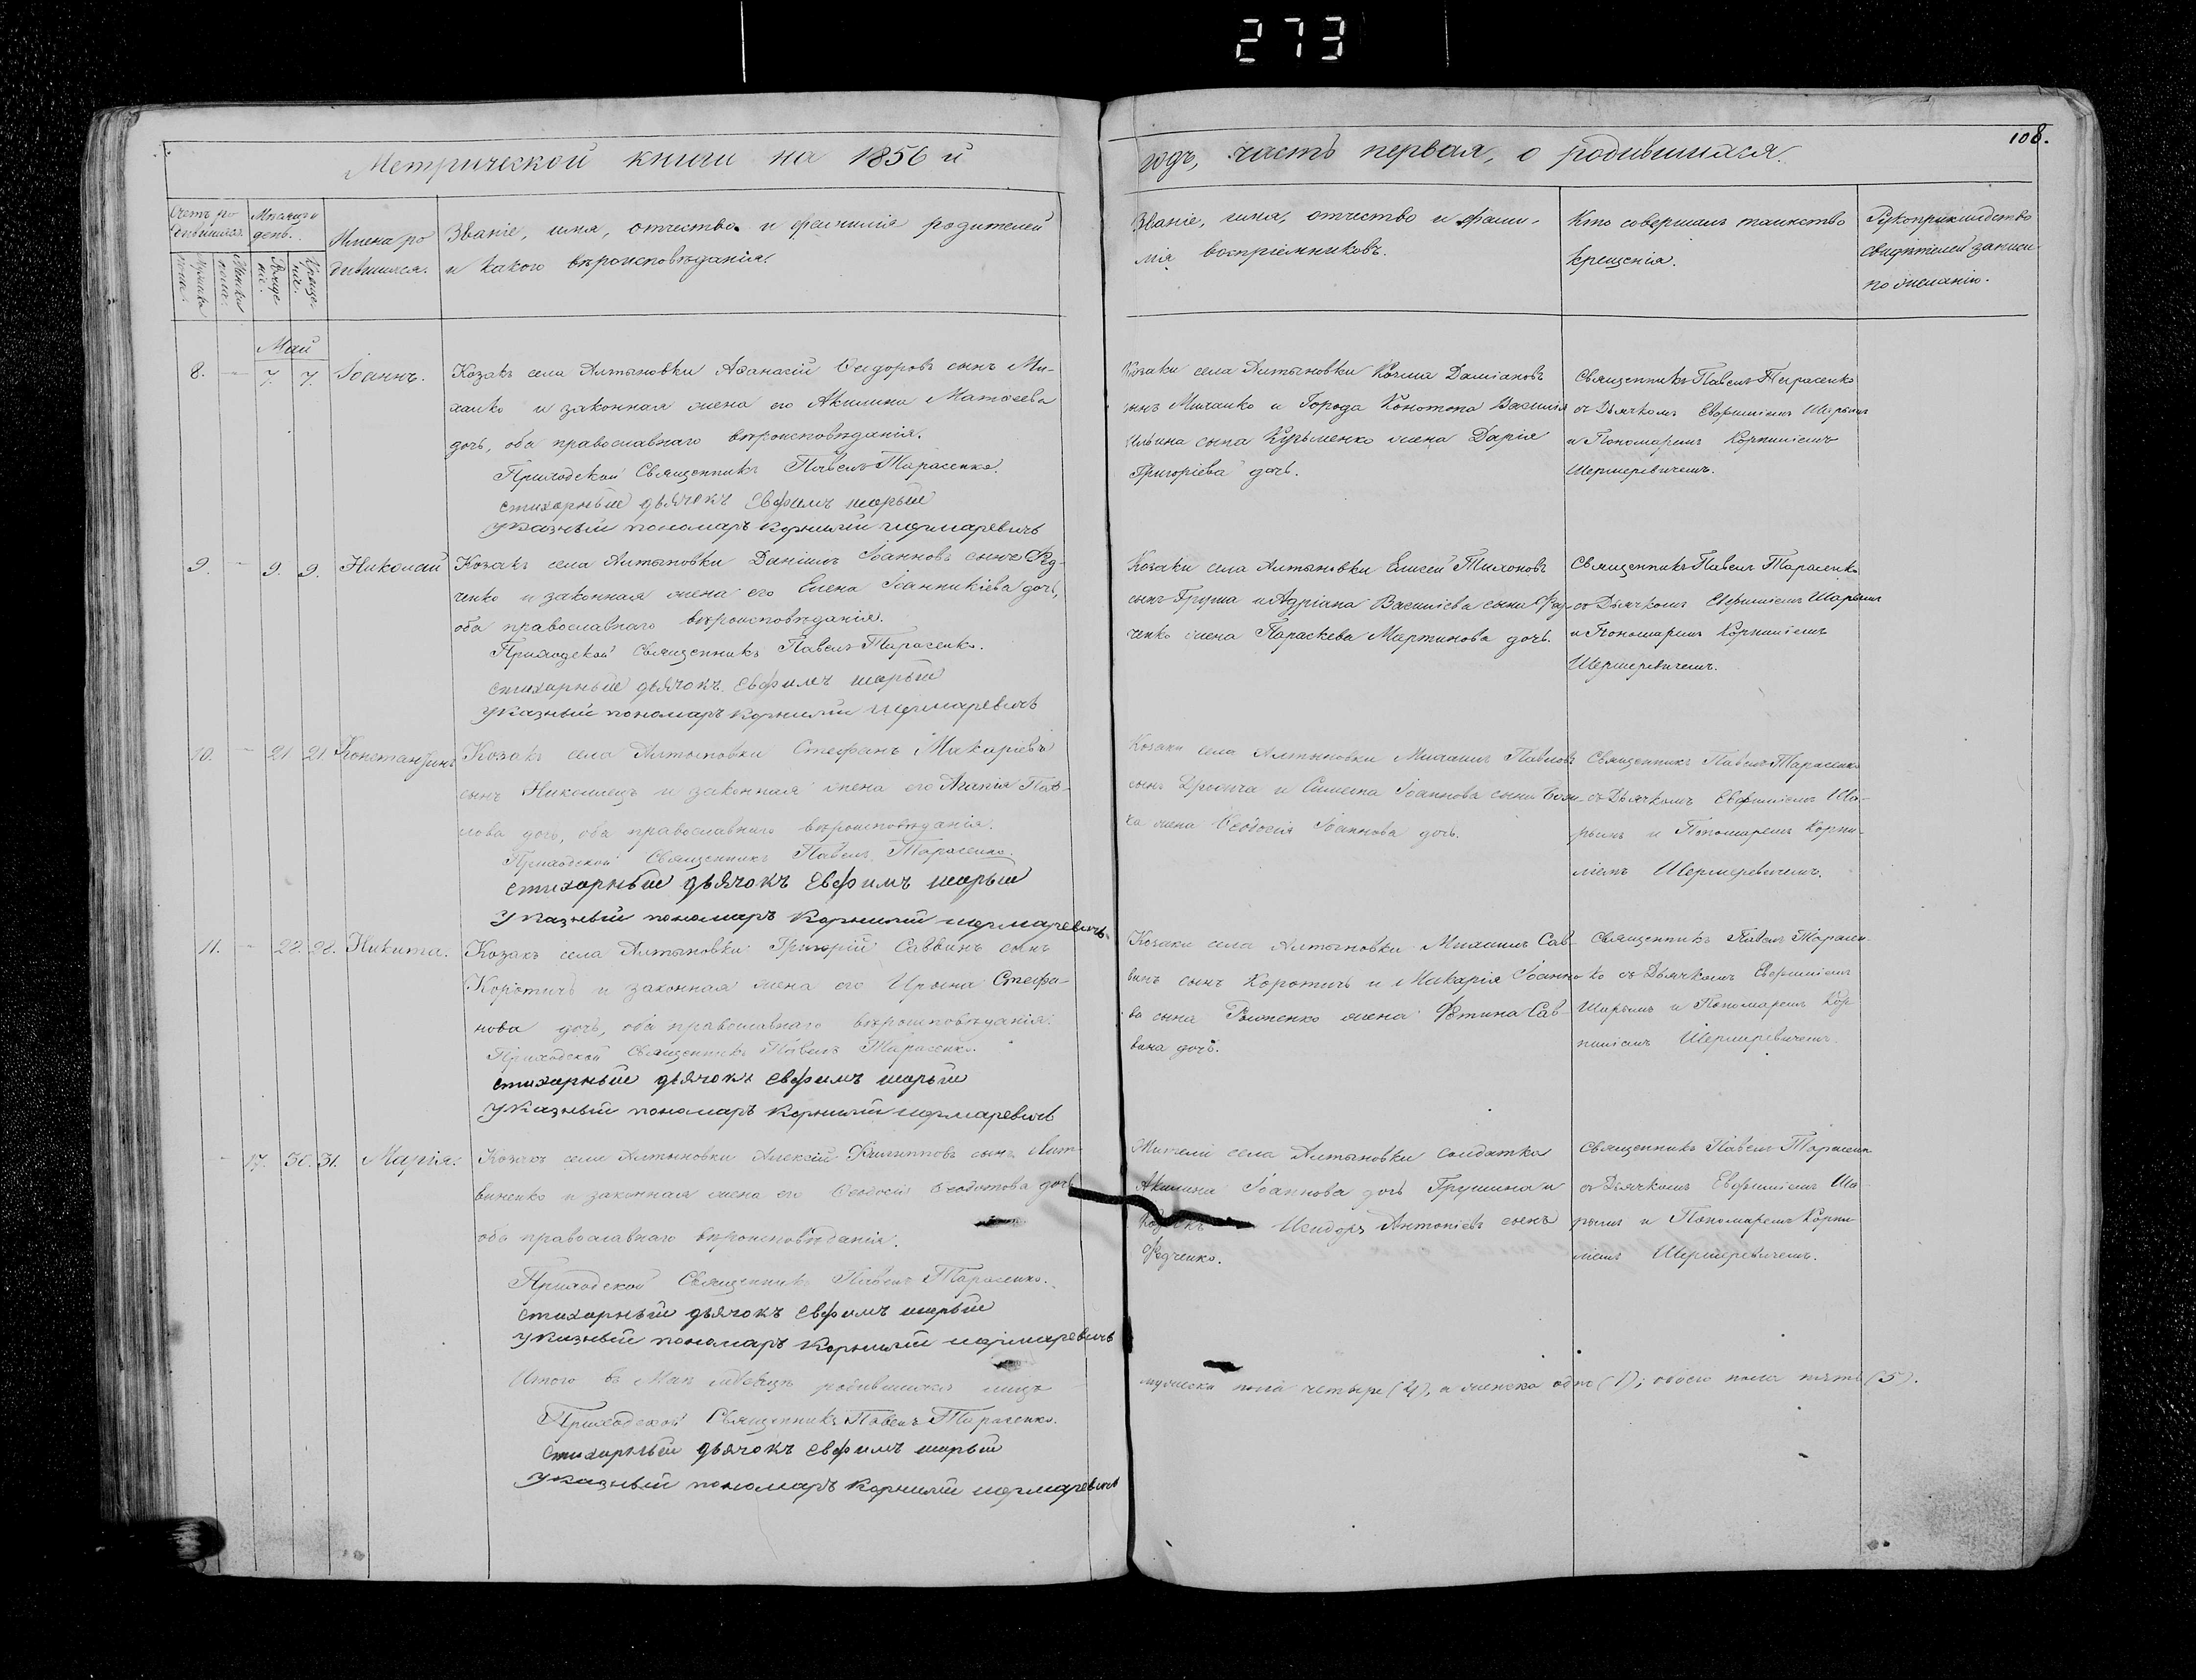 273
108.
Метрической книги на 1856 й
годъ, часть первая, о родившихся.
Счетъ ро
дившихся.
Мѣсяцъ и
день.
Имена ро
дившихся.
Званіе, имя, отчество и фамилія родителей
и какого вѣроисповѣданія.
Званіе, имя, отчество и фами-
лія воспріемниковъ.
Кто совершалъ таинство
крещенія.
Рукоприкладство
свидѣтелей записи
по желанію.
Май
8. — 7. 7. Іоаннъ.
Козакъ села Алтыновки Аѳанасій Сидоровъ сынъ Ми-
халко и законная жена его Акилина Матѳеева
дочь, оба православнаго вѣроисповѣданія.
Приходской Священникъ Павелъ Тарасенко.
стихарный дьячокъ Евфимъ шарый
указный пономаръ корнилій шермаревичъ
Козаки села Алтыновки Козма Даміановъ
сынъ Михалко и Города Конотопа Василія
Ильина сына Кузьменко жена Дарія
Григоріева дочь.
Священникъ Павелъ Тарасенко
съ Дьячкомъ Евфиміемъ Шарымъ
и Пономаремъ Корниліемъ
Шермеревичемъ.
9. — 9. 9. Николай
Козакъ села Алтыновки Даніилъ Іоанновъ сынъ Фед-
ченко и законная жена его Елена Іоанникіева дочь,
оба православнаго вѣроисповѣданія.
Приходской Священникъ Павелъ Тарасенко.
стихарный дьячокъ Евфимъ шарый
указный пономаръ корнилій шермаревичъ
Козаки села Алтыновки Елисей Тихоновъ
сынъ Груша и Адріана Василіева сына Фед-
ченко жена Параскева Мартинова дочь.
Священникъ Павелъ Тарасенко
съ Дьячкомъ Евфиміемъ Шарымъ
и Пономаремъ Корниліемъ
Шермеревичемъ.
10. — 21 21. Константинъ
Козакъ села Алтыновки Стефанъ Макаріевъ
сынъ и законная жена его Агапія Пав-
лова дочь, оба православнаго вѣроисповѣданія.
Приходской Священникъ Павелъ Тарасенко.
стихарный дьячокъ Евфимъ шарый
указный пономаръ корнилій шермаревичъ
Козаки села Алтыновки Михаилъ Павловъ
сынъ и Симеона Іоаннова сына
жена Ѳеодосія Іоаннова дочь.
Священникъ Павелъ Тарасенко
съ Дьячкомъ Евфиміемъ Ша-
рымъ и Пономаремъ Корни-
ліемъ Шермеревичемъ.
11. — 28. 28. Никита.
Козакъ села Алтыновки Григорій Саввинъ сынъ
Коротичъ и законная жена его Ирина Стефа-
нова дочь, оба православнаго вѣроисповѣданія.
Приходской Священникъ Павелъ Тарасенко.
стихарный дьячокъ Евфимъ шарый
указный пономаръ корнилій шермаревичъ
Козаки села Алтыновки Михаилъ Сав-
винъ сынъ Коротичъ и Макарія Іоанно
ва сына жена Фотина Сав-
вина дочь.
Священникъ Павелъ Тарасен-
ко съ Дьячкомъ Евфиміемъ
Шарымъ и Пономаремъ Кор
ниліемъ Шермеревичемъ.
— 17. 30. 31. Марія.
Козакъ села Алтыновки Алексій Филипповъ сынъ Лит-
виненко и законная жена его Ѳеодосія Ѳеодотова дочь
оба православнаго вѣроисповѣданія.
Приходской Священникъ Павелъ Тарасенко.
стихарный дьячокъ Евфимъ шарый
указный пономаръ корнилій шермаревичъ
Жители села Алтыновки солдатка
Акилина Іоаннова дочь Грушина и
Козакъ Исидоръ Антоніевъ сынъ
Федченко.
Священникъ Павелъ Тарасенк
съ Дьячкомъ Евфиміемъ Ша-
рымъ и Пономаремъ Корни
ліемъ Шермеревичемъ.
Итого въ Маѣ мѣсяцѣ родившихся лицъ
мужеска пола четыре (4), а женска одно (1); обоего пола пять (5).
Приходской Священникъ Павелъ Тарасенко.
стихарный дьячокъ Евфимъ шарый
указный пономаръ корнилій шермаревичъ